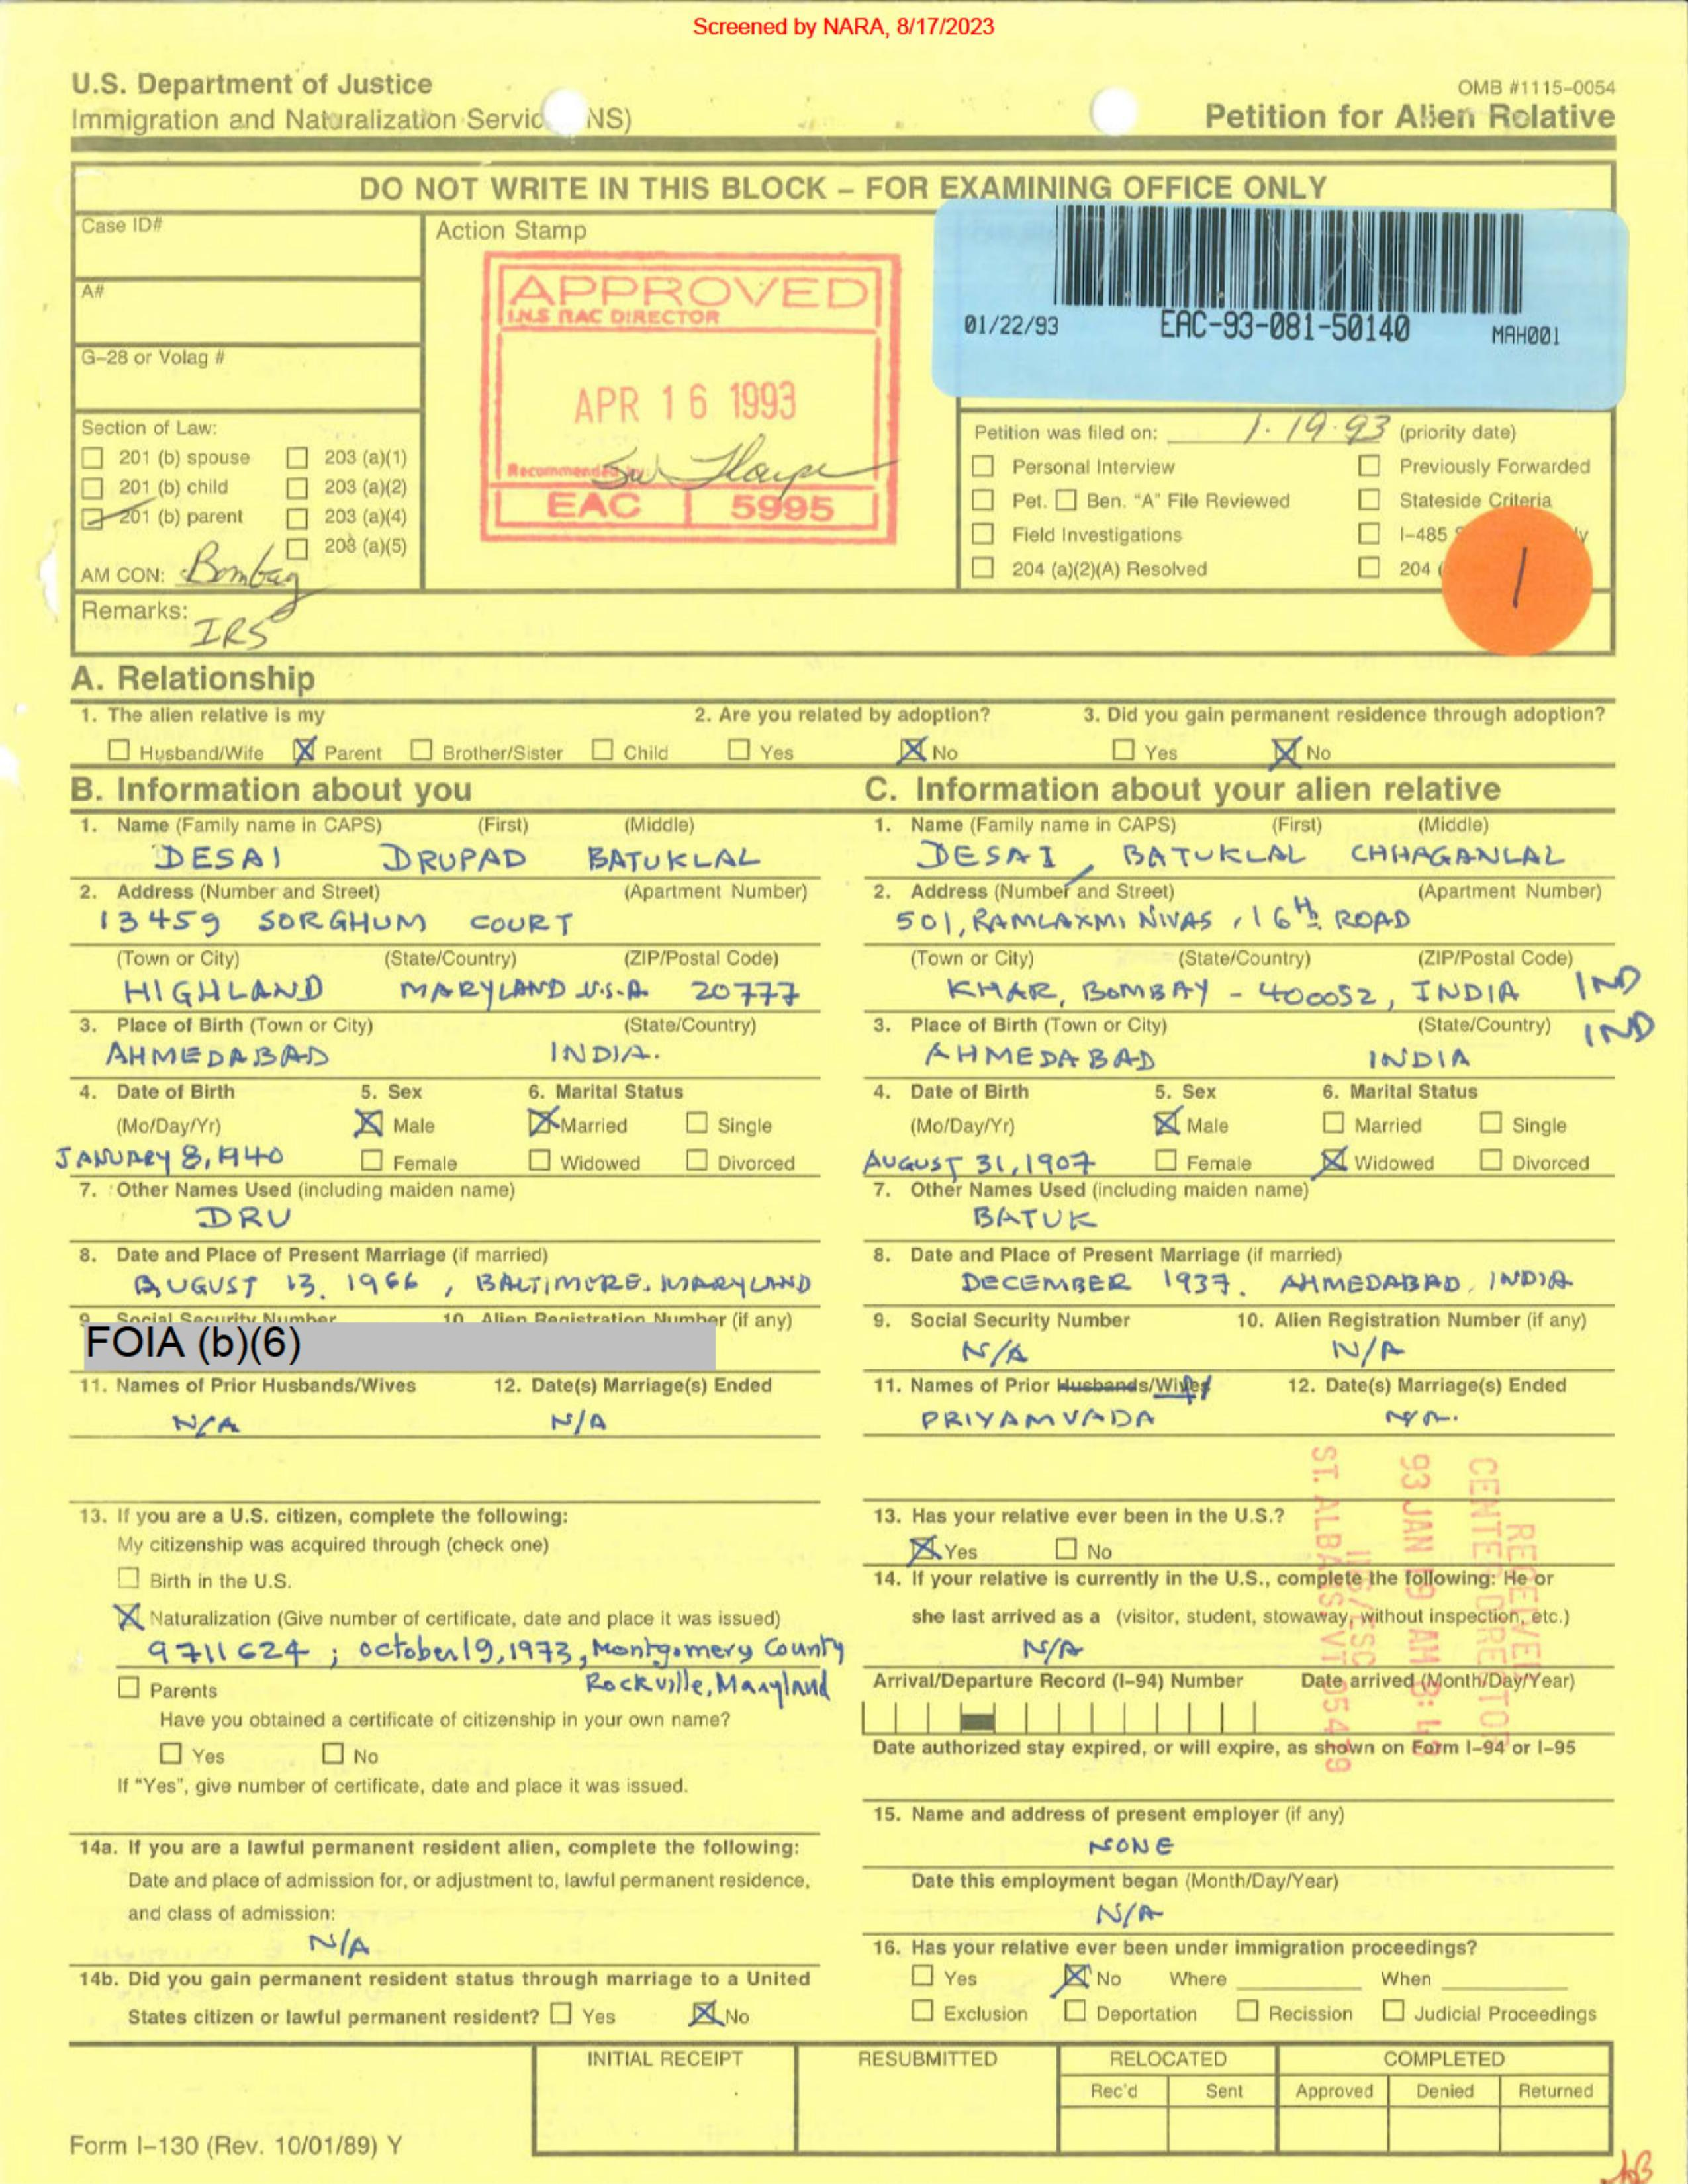 Screened by NARA, 8/17/2023
U.S. Department of Justice
Immigration and Naturalization Servic NS)
OMB #1115-0054
Petition for Alien Relative
DO NOT WRITE IN THIS BLOCK – FOR EXAMINING OFFICE ONLY
Case ID#
A#
G-28 or Volag #
Section of Law:
201 (b) spouse 203 (a)(1)
201 (b) child 203 (a)(2)
201 (b) parent 203 (a)(4)
203 (a)(5)
AM CON: Bombay
Action Stamp
APPROVED
I.N.S RAC DIRECTOR
APR 16 1993
Recommended by:
EAC 5995
01/22/93 EAC-93-081-50140 MAH001
Petition was filed on: 1.19.93 (priority date)
Personal Interview Previously Forwarded
Pet. Ben. "A" File Reviewed Stateside Criteria
Field Investigations I-485
204 (a)(2)(A) Resolved 204 (
1
Remarks: IRS
A. Relationship
1. The alien relative is my 2. Are you related by adoption? 3. Did you gain permanent residence through adoption?
Husband/Wife X Parent Brother/Sister Child Yes X No Yes X No
B. Information about you
1. Name (Family name in CAPS) (First) (Middle)
DESAI DRUPAD BATUKLAL
2. Address (Number and Street) (Apartment Number)
13459 SORGHUM COURT
(Town or City) (State/Country) (ZIP/Postal Code)
HIGHLAND MARYLAND U.S.A. 20777
3. Place of Birth (Town or City) (State/Country)
AHMEDABAD INDIA.
4. Date of Birth 5. Sex 6. Marital Status
(Mo/Day/Yr) X Male X Married Single
JANUARY 8, 1940 Female Widowed Divorced
7. Other Names Used (including maiden name)
DRU
8. Date and Place of Present Marriage (if married)
AUGUST 13, 1966, BALTIMORE, MARYLAND
9. Social Security Number 10. Alien Registration Number (if any)
FOIA (b)(6)
11. Names of Prior Husbands/Wives 12. Date(s) Marriage(s) Ended
N/A N/A
13. If you are a U.S. citizen, complete the following:
My citizenship was acquired through (check one)
Birth in the U.S.
X Naturalization (Give number of certificate, date and place it was issued)
9711624; october 19, 1973, Montgomery County
Rockville, Maryland
Parents
Have you obtained a certificate of citizenship in your own name?
Yes No
If "Yes", give number of certificate, date and place it was issued.
14a. If you are a lawful permanent resident alien, complete the following:
Date and place of admission for, or adjustment to, lawful permanent residence,
and class of admission:
N/A
14b. Did you gain permanent resident status through marriage to a United
States citizen or lawful permanent resident? Yes X No
C. Information about your alien relative
1. Name (Family name in CAPS) (First) (Middle)
DESAI, BATUKLAL CHHAGANLAL
2. Address (Number and Street) (Apartment Number)
501, RAMLAXMI NIVAS, 16th ROAD
(Town or City) (State/Country) (ZIP/Postal Code)
KHAR, BOMBAY - 400052, INDIA IND
3. Place of Birth (Town or City) (State/Country) IND
AHMEDABAD INDIA
4. Date of Birth 5. Sex 6. Marital Status
(Mo/Day/Yr) X Male Married Single
AUGUST 31, 1907 Female X Widowed Divorced
7. Other Names Used (including maiden name)
BATUK
8. Date and Place of Present Marriage (if married)
DECEMBER 1937. AHMEDABAD, INDIA
9. Social Security Number 10. Alien Registration Number (if any)
N/A N/A
11. Names of Prior Husbands/Wives 12. Date(s) Marriage(s) Ended
PRIYAMVADA N/A.
13. Has your relative ever been in the U.S.?
X Yes No
14. If your relative is currently in the U.S., complete the following: He or
she last arrived as a (visitor, student, stowaway, without inspection, etc.)
N/A
Arrival/Departure Record (I-94) Number Date arrived (Month/Day/Year)
Date authorized stay expired, or will expire, as shown on Form I-94 or I-95
RECEIVED
CENTER DIRECTOR
93 JAN 19 AM 8:
INS/ESC
ST. ALBANS, VT 05479
15. Name and address of present employer (if any)
NONE
Date this employment began (Month/Day/Year)
N/A
16. Has your relative ever been under immigration proceedings?
Yes X No Where When
Exclusion Deportation Recission Judicial Proceedings
INITIAL RECEIPT RESUBMITTED RELOCATED COMPLETED
Rec'd Sent Approved Denied Returned
Form I-130 (Rev. 10/01/89) Y